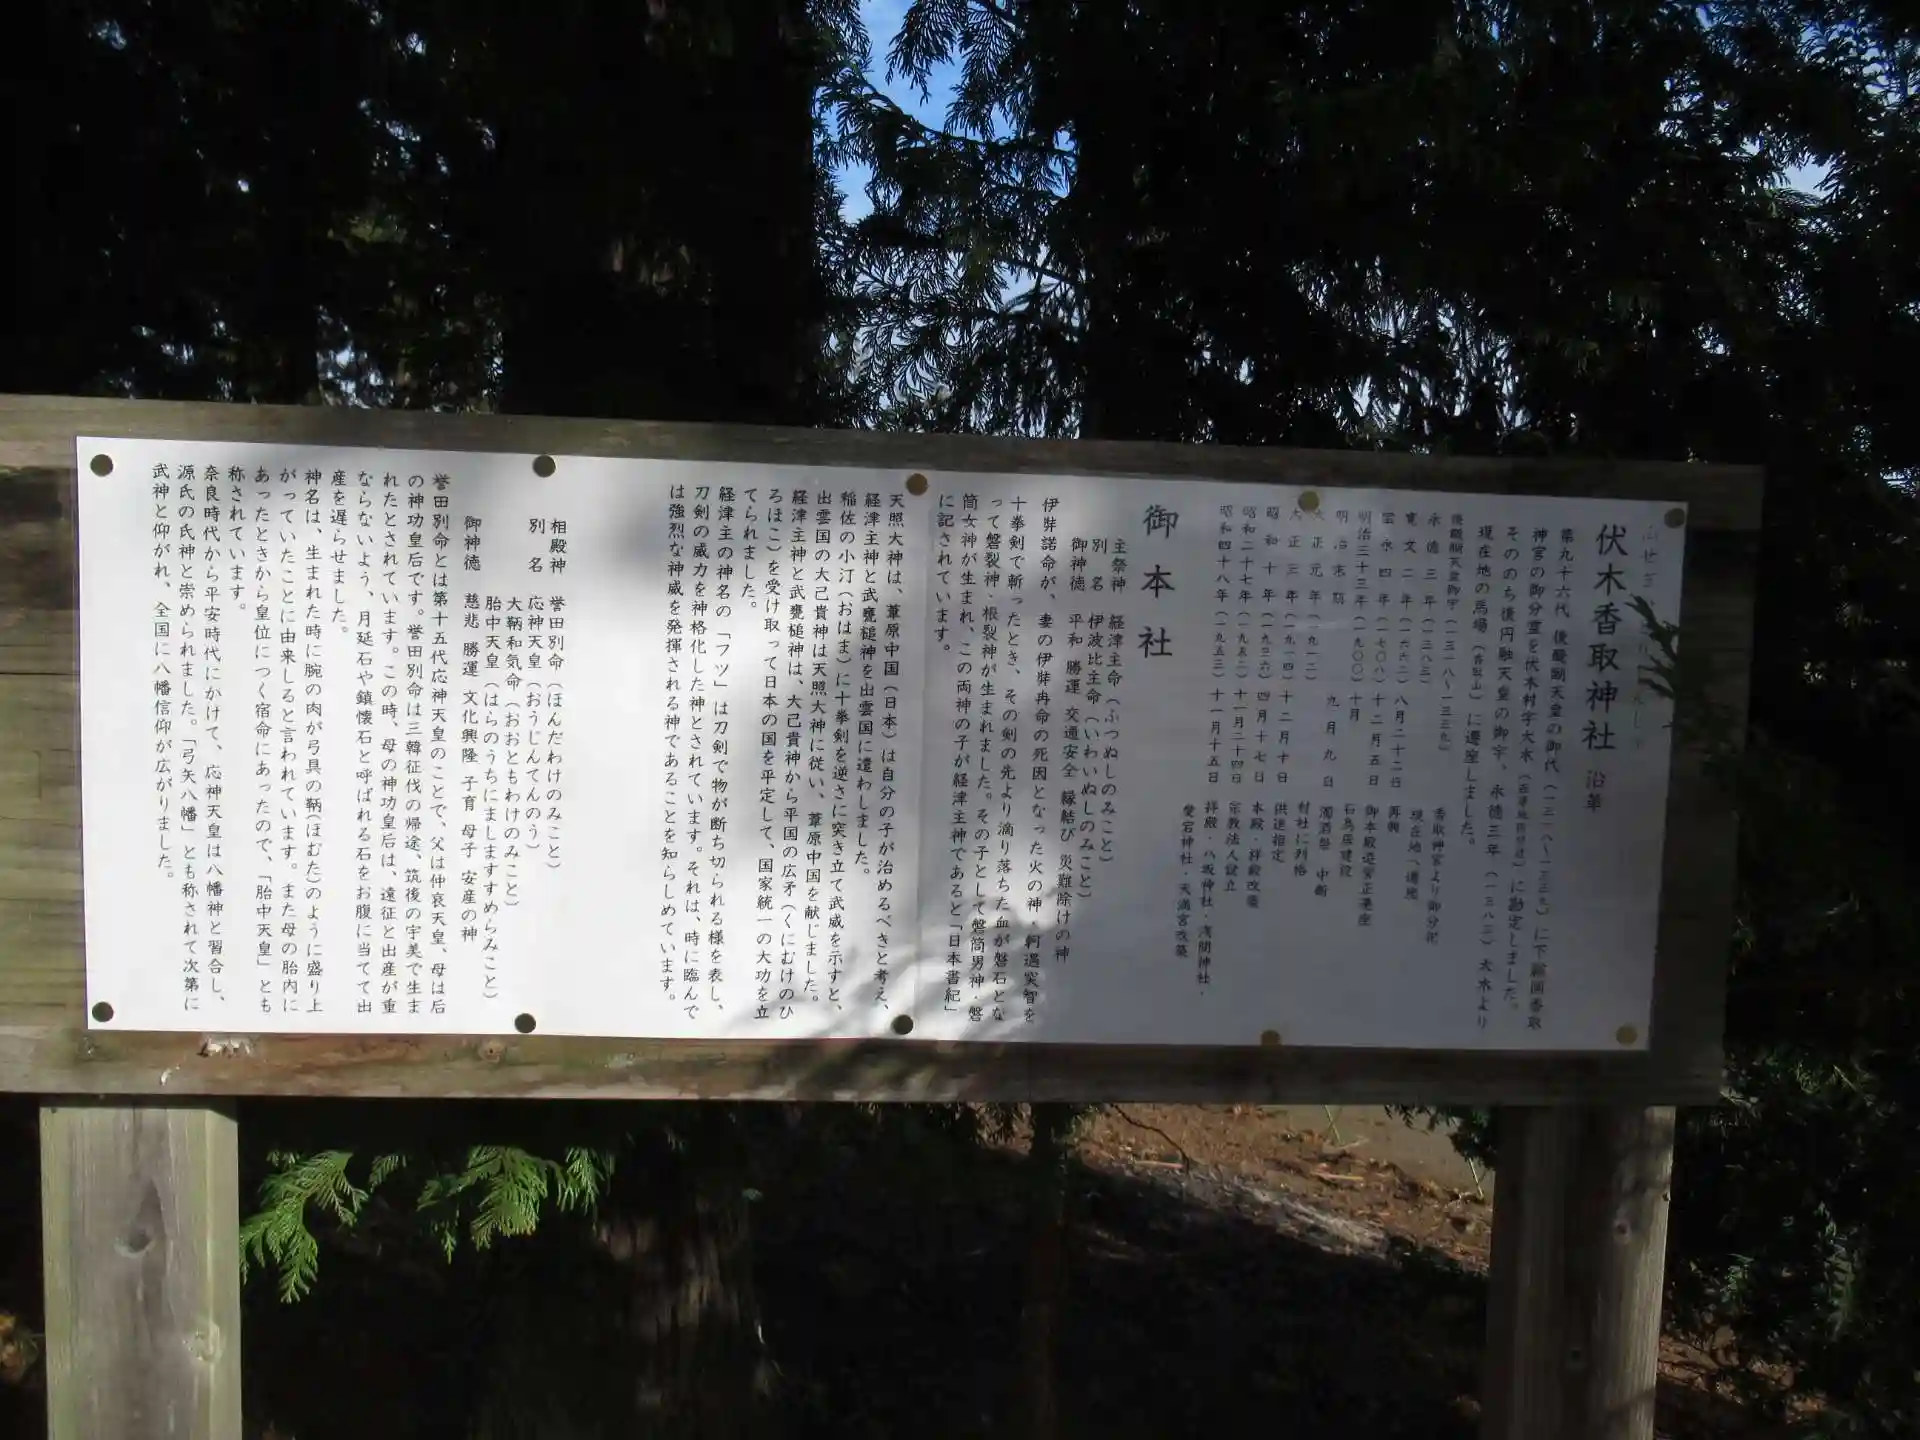 伏木香取神社 沿革
第九十六代 後醍醐天皇の御代(一三一八~一三三九)に下総国香取
神宮の御分霊を伏木村字大木に勘定しました。
そののち後円融天皇の御宇、永徳三年(一三八三)大木より
現在地の馬場(香取山)に遷座しました。
後醍醐天皇御宇(一三一八~一三三九) 香取神宮より御分祀
永徳三年(一三八三) 現在地へ遷地
寛文二年(一六六二)八月二十二日 再興
宝永四年(一七〇八)十二月五日 御本殿造営正遷座
明治三十三年(一九〇〇)十月 石鳥居建設
明治末期 濁酒祭 中断
大正元年(一九一二)九月九日 村社に列格
大正三年(一九一四)十二月十日 供進指定
昭和十年(一九三六)四月十七日 本殿・拝殿改築
昭和二十七年(一九五二)十一月二十四日 宗教法人設立
昭和四十八年(一九五三)十一月十五日 拝殿・八坂神社・浅間神社・
愛宕神社・天満宮改築
御本社
主祭神 経津主命(ふつぬしのみこと)
別名 伊波比主命(いわいぬしのみこと)
御神徳 平和 勝運 交通安全 縁結び 災難除けの神
伊弉諾命が、妻の伊弉冉命の死因となった火の神・軻遇突智を
十拳剣で斬ったとき、その剣の先より滴り落ちた血が磐石とな
って磐裂神・根裂神が生まれました。その子として磐筒男神・磐
筒女神が生まれ、この両神の子が経津主神であると「日本書紀」
に記されています。
天照大神は、葦原中国(日本)は自分の子が治めるべきと考え、
経津主神と武甕槌神を出雲国に遣わしました。
稲佐の小汀(おはま)に十拳剣を逆さに突き立て武威を示すと、
出雲国の大己貴神は天照大神に従い、葦原中国を献じました。
経津主神と武甕槌神は、大己貴神から平国の広矛(くにむけのひ
ろほこ)を受け取って日本の国を平定して、国家統一の大功を立
てられました。
経津主の神名の「フツ」は刀剣で物が断ち切られる様を表し、
刀剣の威力を神格化した神とされています。それは、時に臨んで
は強烈な神威を発揮される神であることを知らしめています。
相殿神 誉田別命(ほんだわけのみこと)
別名 応神天皇(おうじんてんのう)
大鞆和気命(おおともわけのみこと)
胎中天皇(はらのうちにましますすめらみこと)
御神徳 慈悲 勝運 文化興隆 子育 母子 安産の神
誉田別命とは第十五代応神天皇のことで、父は仲哀天皇、母は后
の神功皇后です。誉田別命は三韓征伐の帰途、筑後の宇美で生ま
れたとされています。この時、母の神功皇后は、遠征と出産が重
ならないよう、月延石や鎮懐石と呼ばれる石をお腹に当てて出
産を遅らせました。
神名は、生まれた時に腕の肉が弓具の鞆(ほむた)のように盛り上
がっていたことに由来しると言われています。また母の胎内に
あったときから皇位につく宿命にあったので、「胎中天皇」とも
称されています。
奈良時代から平安時代にかけて、応神天皇は八幡神と習合し、
源氏の氏神と崇められました。「弓矢八幡」とも称されて次第に
武神と仰がれ、全国に八幡信仰が広がりました。